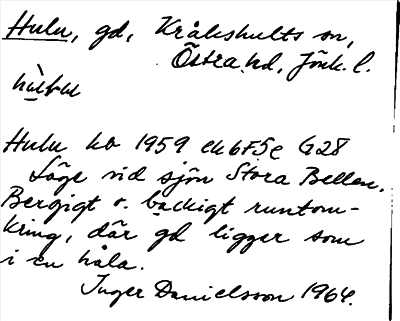 Hulu, gd, Kråkshults sn,
Östra hd, Jönk. l.
Hulu kb 1959 ek6F5e G28
Läge vid sjön Stora Bellen.
Bergigt o. backigt runtom-
kring, där gd ligger som
i en håla.
Inger Danielsson 1964.